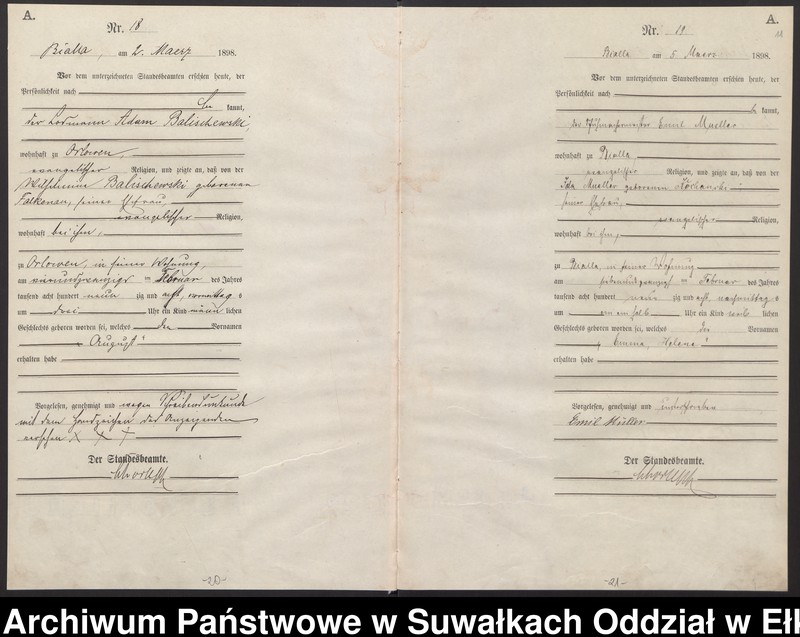 A.
Nr. 18
Bialla, am 2. Maerz 1898.
Vor dem unterzeichneten Standesbeamten erschien heute, der
Persönlichkeit nach
be kannt,
der Losmann Adam Balischewski,
wohnhaft zu Orlowen,
evangelischer Religion, und zeigte an, daß von der
Wilhelmine Balischewski geborenen
Falkenau, seiner Ehefrau,
evangelischer Religion,
wohnhaft bei ihm,
zu Orlowen, in seiner Wohnung,
am vierundzwanzigs ten Februar des Jahres
tausend acht hundert neun zig und acht, vormittag s
um drei Uhr ein Kind männ lichen
Geschlechts geboren worden sei, welches den Vornamen
"August"
erhalten habe
Vorgelesen, genehmigt und wegen Schreibensunkunde
mit dem Handzeichen des Anzeigenden
versehen X X X
Der Standesbeamte.
-20-
A.
Nr. 19
Bialla am 5 Maerz 1898.
Vor dem unterzeichneten Standesbeamten erschien heute, der
Persönlichkeit nach
be kannt,
der Schuhmachermeister Emil Mueller
wohnhaft zu Bialla
evangelischer Religion, und zeigte an, daß von der
Ida Mueller geborenen
seiner Ehefrau,
evangelischer Religion,
wohnhaft bei ihm,
zu Bialla in seiner Wohnung
am siebenundzwanzigst en Februar des Jahres
tausend acht hundert neun zig und acht, nachmittag s
um Uhr ein Kind weib lichen
Geschlechts geboren worden sei, welches die Vornamen
"Emma, Helene"
erhalten habe
Vorgelesen, genehmigt und unterschrieben
Emil Müller
Der Standesbeamte.
-21-
Archiwum Państwowe w Suwałkach Oddział w Ełk